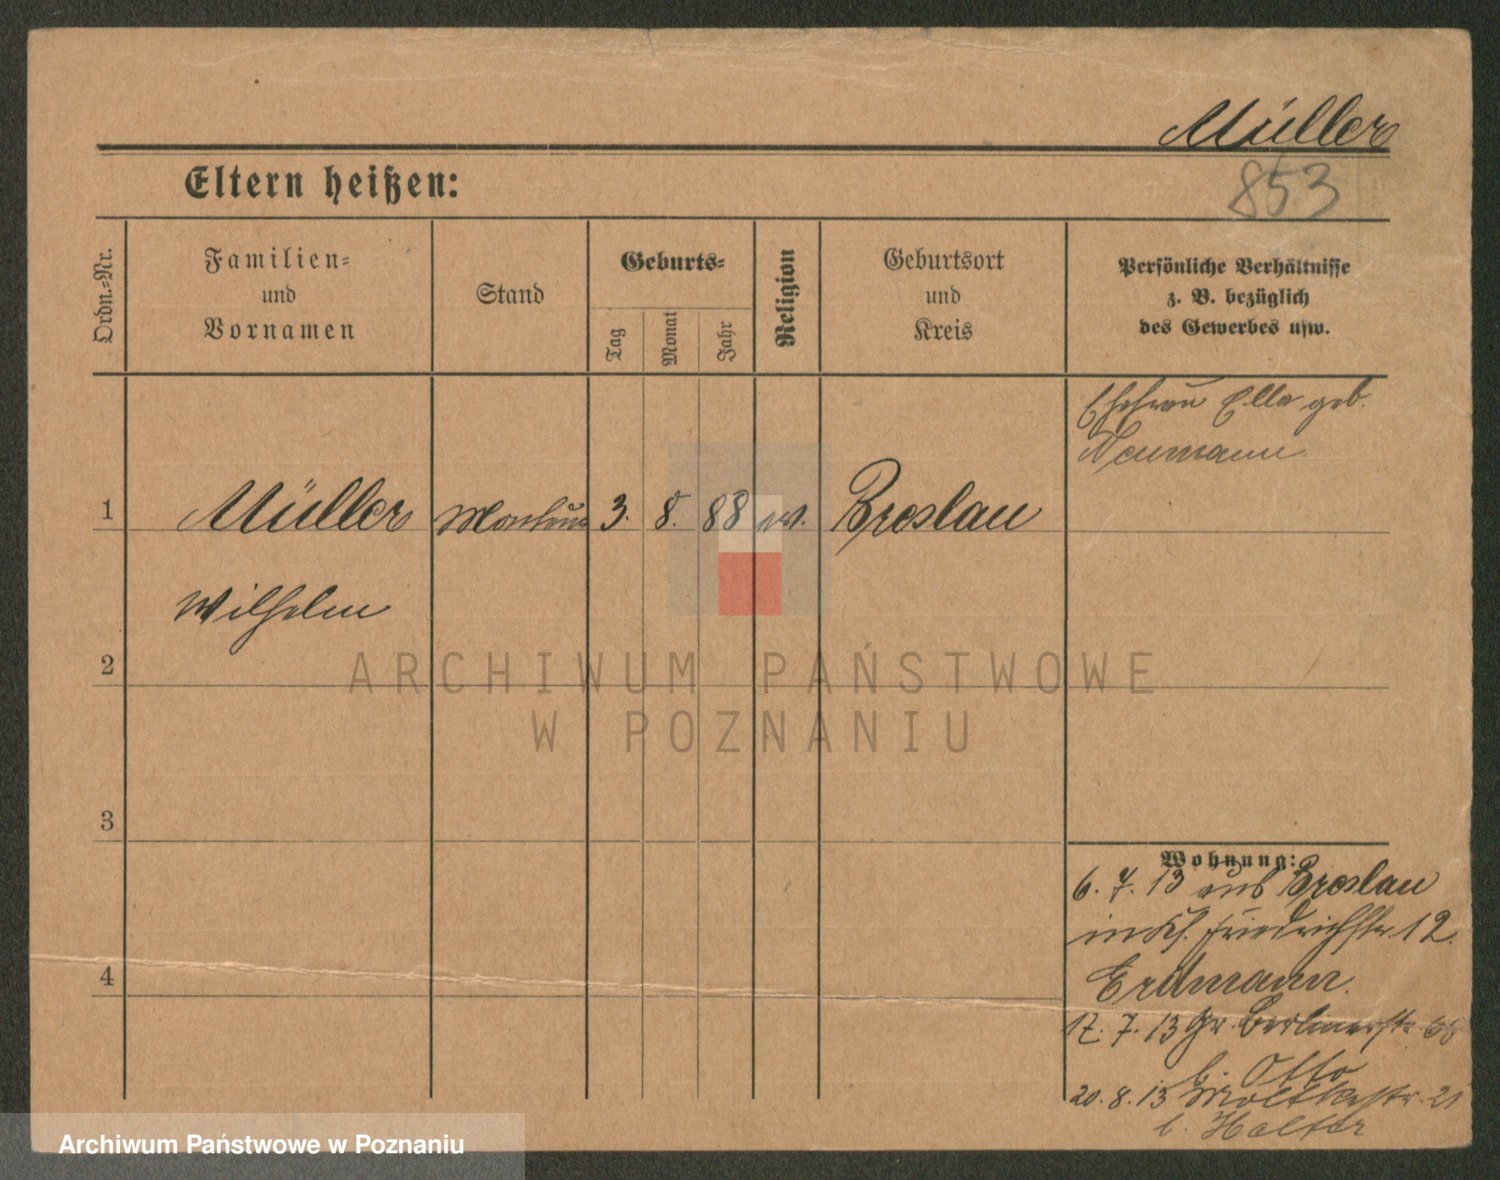 Müller
853
Eltern heißen:
Ordn.-Nr.
Familien-
und
Vornamen
Stand
Geburts-
Tag
Monat
Jahr
Religion
Geburtsort
und
Kreis
Persönliche Verhältnisse
z. B. bezüglich
des Gewerbes usw.
Ehefrau Ella geb.
Neumann
1
Müller
Monteur
3.
8.
88
ev.
Breslau
Wilhelm
2
3
4
Wohnung:
6. 7. 13 aus Breslau
Friedrichstr. 12.
Erdmann.
17. 7. 13 Gr. Berlinerstr.
b. Otto
20. 8. 13 Moltkestr. 21
b. Halter
ARCHIWUM PAŃSTWOWE
W POZNANIU
Archiwum Państwowe w Poznaniu